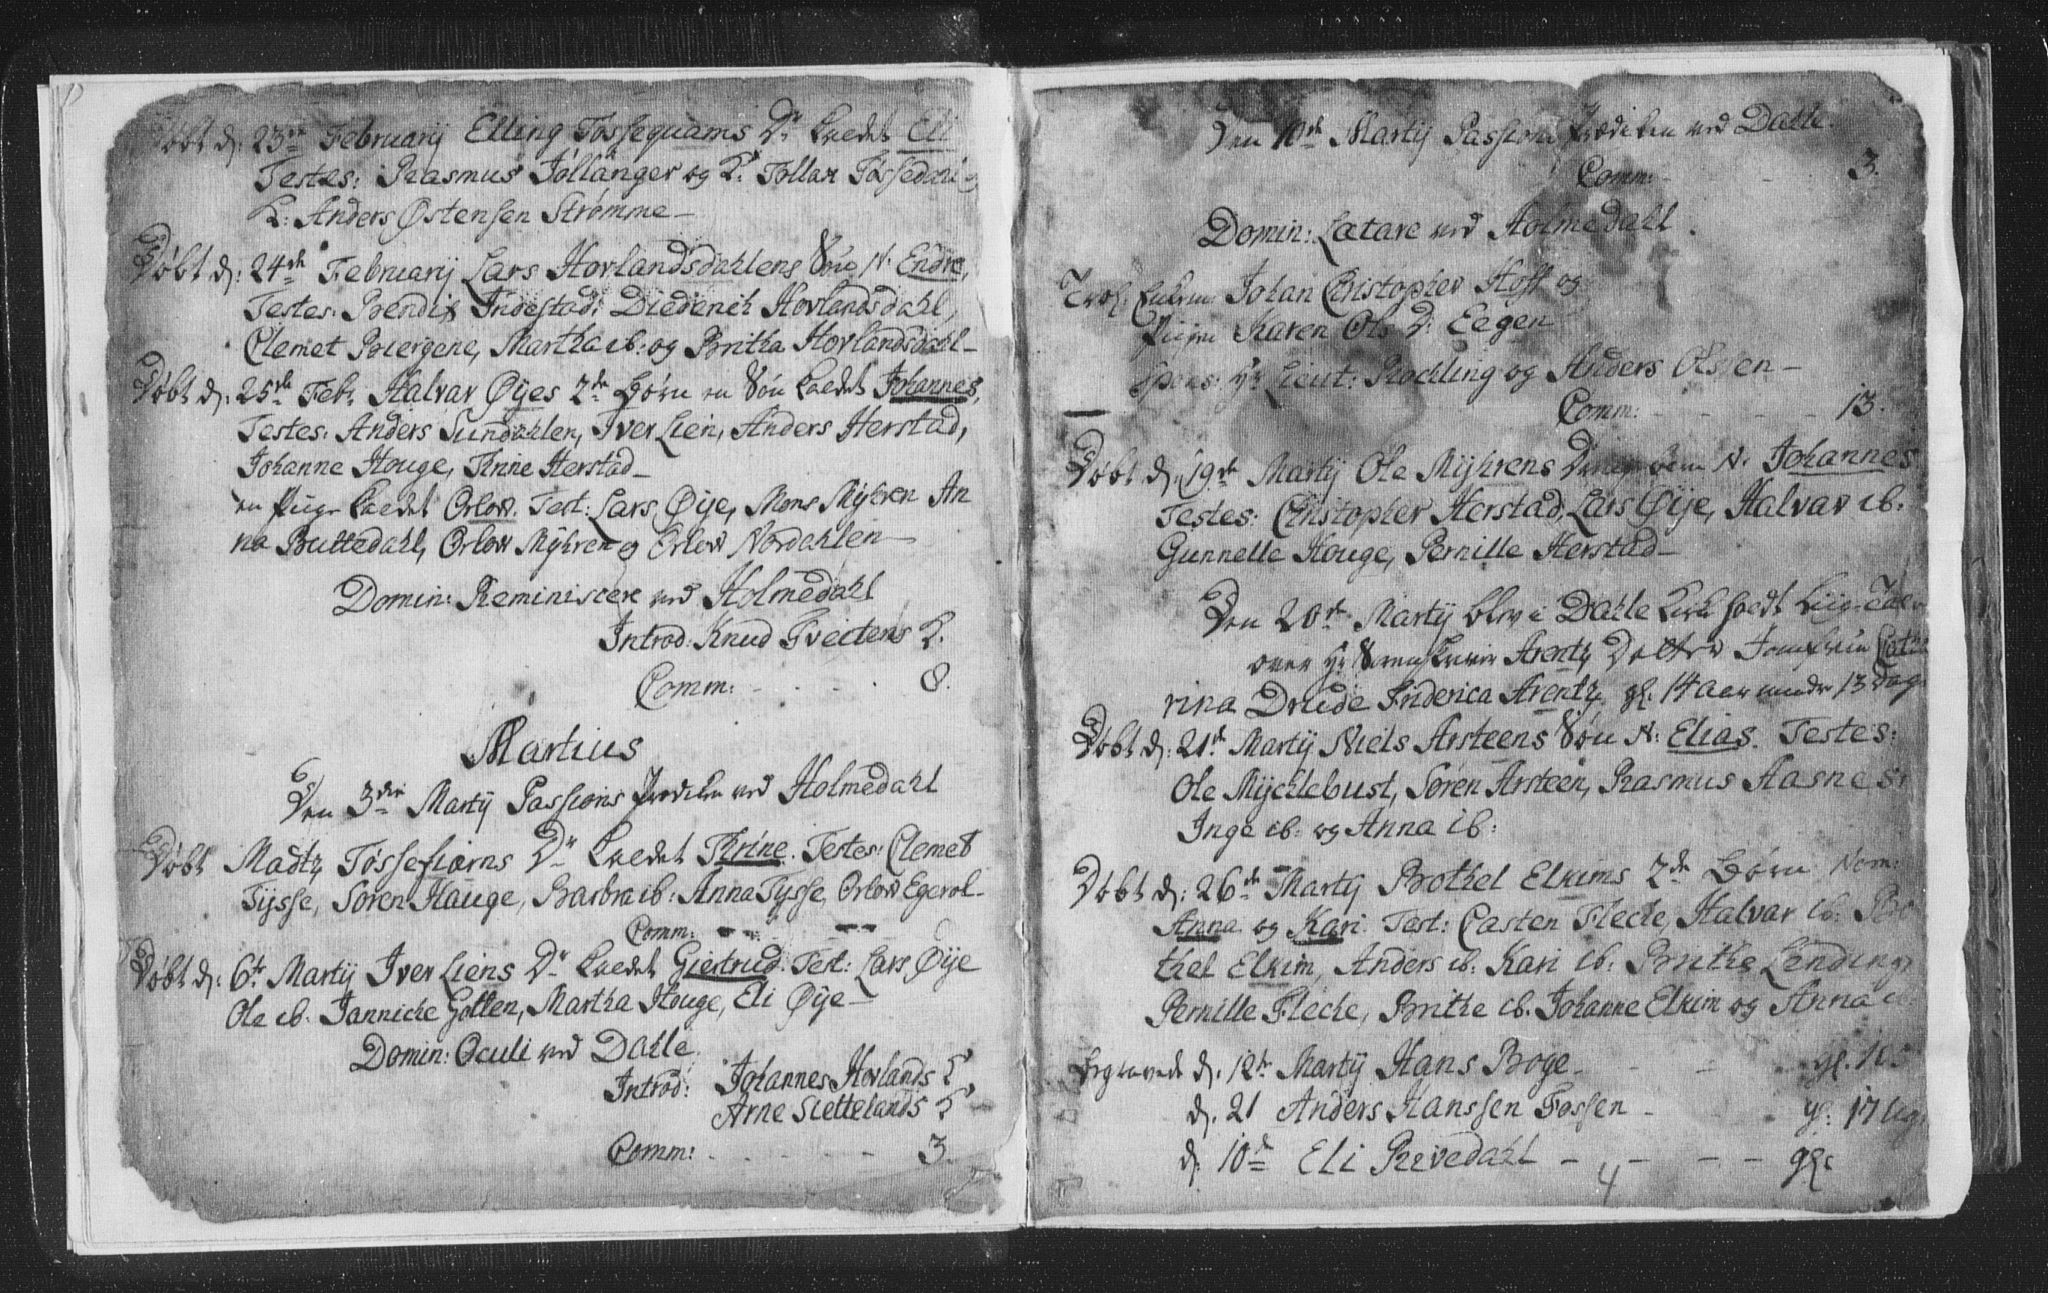 Døbt d: 23de Februarij Elling Fossequams Dr kaldet Eli
Testes: Rasmus Jøllanger og K: Tollar Fossedahl
K: Anders Østensen Strømme
Døbt d: 24de Februarij Lars Hovlandsdahlens Søn N: Endre,
Testes: Bendix Indestad: Diederich Hovlandsdahl,
Clemet Biergene, Martha ib: og Britha Hovlandsdahl
Døbt d: 25de Febr: Halvar Øijes 2de Børn en Søn kaldet Johannes,
Testes: Anders Sundahlen, Iver Lien, Anders Herstad,
Johanne Houge, Thrine Herstad
en Pige kaldet Orlow. Test: Lars Øije, Mons Mijhren An
na Buttedahl, Orlow Mijhren og Orlow Nordahlen
Domin: Reminiscere ved Holmedahl
Introd: Knud Tveitens K.
Comm: 8.
Martius
Den 3die Martij Passions Prediken ved Holmedahl
Døbt Madtz Tøssefiorns Dr kaldet Thrine. Testes: Clemet
Tijsse, Søren Hauge, Barbra ib: Anna Tysse, Orlow Egerol
Comm:
Døbt d: 6te Martij Iver Liens Dr kaldet Giertrud. Test: Lars Øije
Ole ib. Jannicke Gotten, Martha Houge, Eli Øije
Domin: Oculi ved Dahle
Introd: Johannes Hovlands K
Arne Slettelands K
Comm: 3.
Den 10de Martij Passions Prædiken ved Dahle.
Comm: 3.
Domin: Lætare ved Holmedahl.
Trol: Johan Christopher Hoff og
Pigen Karen Ols Dr Eegen
spons: Hr Lieut: Rochling og Anders Olssen
Comm: 13.
Døbt d: 19de Martij Ole Mijhrens N. Johannes
Testes: Christopher Herstad, Lars Øije, Halvar ib.
Gunnelle Houge, Pernille Herstad
Den 20de Martij blev i Dahle Kirke holdt Liig Tale
over Hr Sorenskriver Arentz Datter Jomfrue Catha
rina Drude Friderica Arentz gl: 14 Aar 13 Dage
Døbt d: 21de Martij Niels Arsteens Søn N: Elias. Testes:
Ole Mijcklebust, Søren Arsteen, Rasmus Aasnes:
Inge ib: og Anna ib:
Døbt d: 26de Martij Bothel Elkims 2de Børn Nom:
Anna og Kari. Test: Casten Flecke, Halvar ib: Bo
thel Elkim, Anders ib: Kari ib: Brithe Lending,
Pernille Flecke, Brithe ib. Johanne Elkim og Anna ib:
Begravede d. 12te Martij Hans Boge gl. 10
d. 21 Anders Hanssen Fossen gl: 17 Ug
d: 10de Eli Revedahl gl:
4